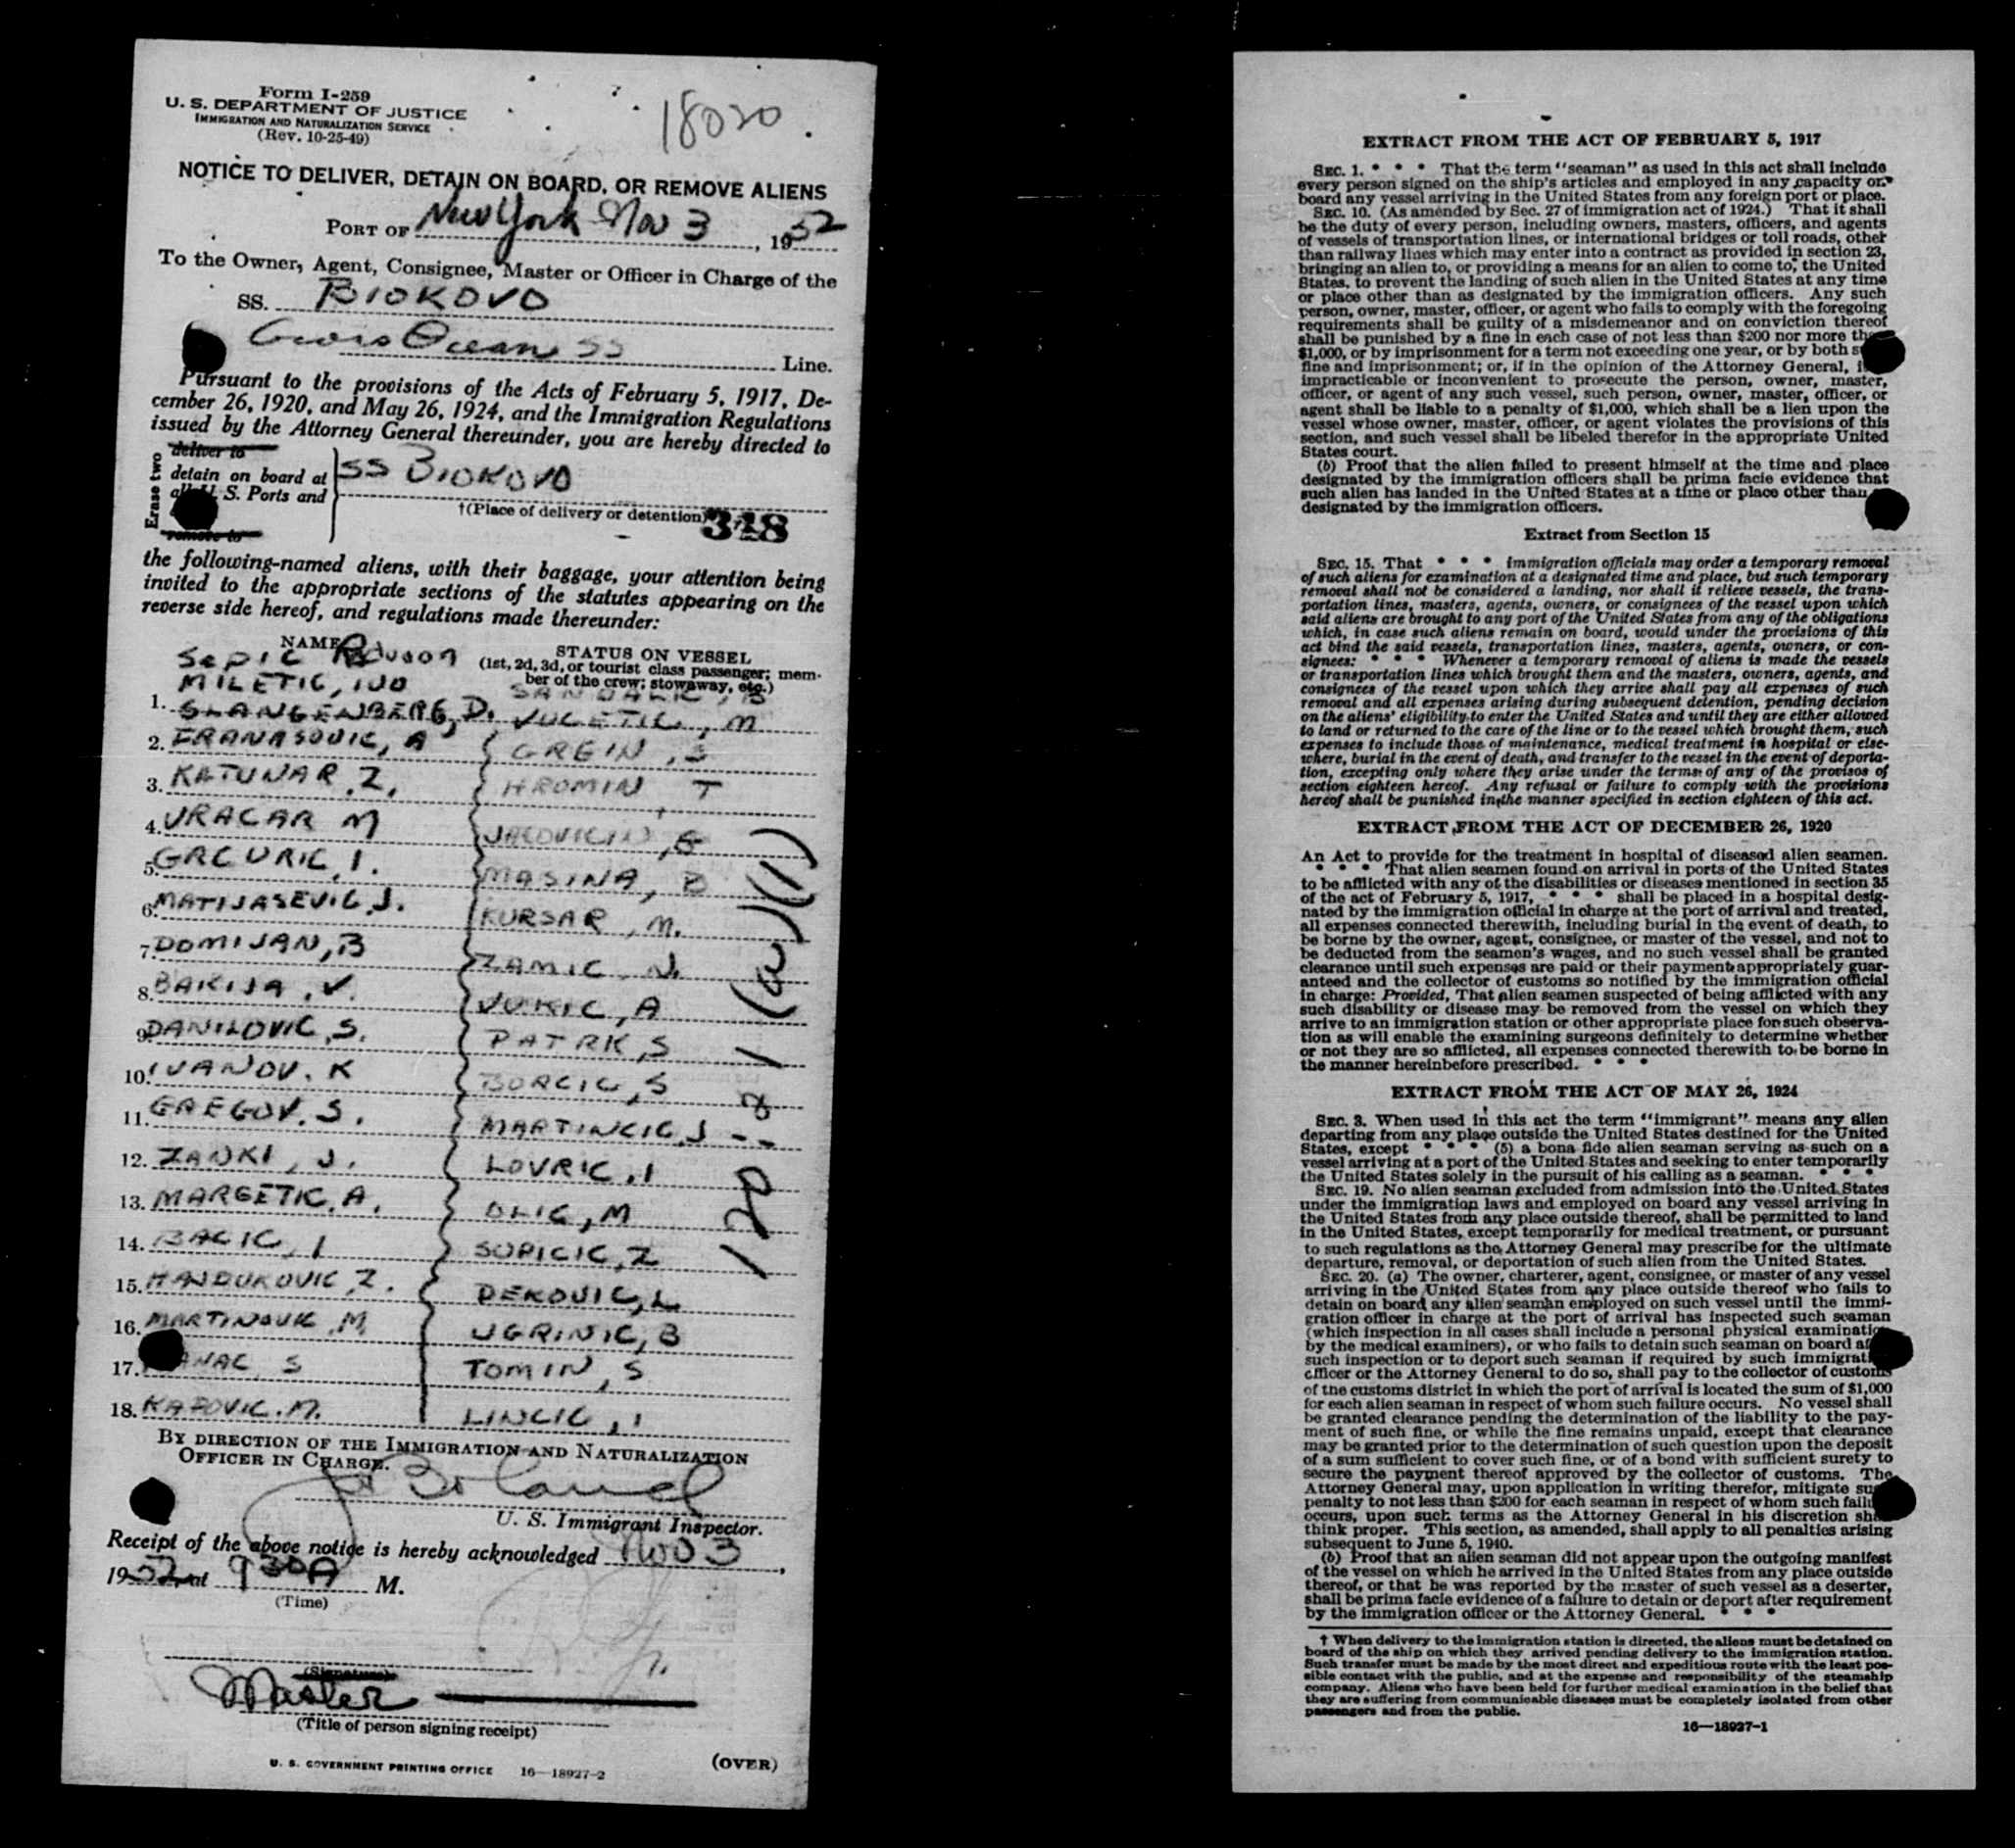 Form I-259
U. S. DEPARTMENT OF JUSTICE
IMMIGRATION AND NATURALIZATION SERVICE
(Rev. 10-25-49)
18020
NOTICE TO DELIVER, DETAIN ON BOARD, OR REMOVE ALIENS
PORT OF New York Nov 3, 1952
To the Owner, Agent, Consignee, Master or Officer in Charge of the
SS. BIOKOVO
Ocean SS Line.
Pursuant to the provisions of the Acts of February 5, 1917, De-
cember 26, 1920, and May 26, 1924, and the Immigration Regulations
issued by the Attorney General thereunder, you are hereby directed to
Erase two
deliver to
detain on board at
all U. S. Ports and
remove to
SS BIOKOVO
†(Place of delivery or detention)
348
the following-named aliens, with their baggage, your attention being
invited to the appropriate sections of the statutes appearing on the
reverse side hereof, and regulations made thereunder:
NAME STATUS ON VESSEL
(1st, 2d, 3d, or tourist class passenger; mem-
ber of the crew; stowaway, etc.)
SEPIC
MILETIC, IVO
1. SLANGENBERG, D. VUCETIC, M
2. FRANASOVIC, A GREIN, S
3. KATUNAR, Z. HROMIN T
4. VRACAR M JACOVICIN, G
5. GRCURIC, I. MASINA, B
6. MATIJASEVIC, J. KURSAR, M.
7. DOMIJAN, B ZAMIC, N.
8. BAKIJA, V. VUKIC, A
9. DANILOVIC, S. PATRK, S
10. IVANOV. K BORCIC, S
11. GREGOV. S. MARTINCIC, J
12. ZANKI, J. LOVRIC, I
13. MARGETIC, A. OLIC, M
14. BACIC, I SOPICIC, Z
15. HANDUKOVIC, Z. DEKOVIC, L
16. M UGRINIC, B
17. S TOMIN, S
18. KAPOVIC. M. LINCIC, I
BY DIRECTION OF THE IMMIGRATION AND NATURALIZATION
OFFICER IN CHARGE.
Boland
U. S. Immigrant Inspector.
Receipt of the above notice is hereby acknowledged Nov 3,
1952, at 9 30 A M.
(Time)
(Signature)
Master
(Title of person signing receipt)
U. S. GOVERNMENT PRINTING OFFICE 16—18927-2
(OVER)
EXTRACT FROM THE ACT OF FEBRUARY 5, 1917
SEC. 1. * * * That the term "seaman" as used in this act shall include
every person signed on the ship's articles and employed in any capacity on
board any vessel arriving in the United States from any foreign port or place.
SEC. 10. (As amended by Sec. 27 of immigration act of 1924.) That it shall
be the duty of every person, including owners, masters, officers, and agents
of vessels of transportation lines, or international bridges or toll roads, other
than railway lines which may enter into a contract as provided in section 23,
bringing an alien to, or providing a means for an alien to come to, the United
States, to prevent the landing of such alien in the United States at any time
or place other than as designated by the immigration officers. Any such
person, owner, master, officer, or agent who fails to comply with the foregoing
requirements shall be guilty of a misdemeanor and on conviction thereof
shall be punished by a fine in each case of not less than $200 nor more
$1,000, or by imprisonment for a term not exceeding one year, or by both
fine and imprisonment; or, if in the opinion of the Attorney General,
impracticable or inconvenient to prosecute the person, owner, master,
officer, or agent of any such vessel, such person, owner, master, officer, or
agent shall be liable to a penalty of $1,000, which shall be a lien upon the
vessel whose owner, master, officer, or agent violates the provisions of this
section, and such vessel shall be libeled therefor in the appropriate United
States court.
(b) Proof that the alien failed to present himself at the time and place
designated by the immigration officers shall be prima facie evidence that
such alien has landed in the United States at a time or place other than
designated by the immigration officers.
Extract from Section 15
SEC. 15. That * * * immigration officials may order a temporary removal
of such aliens for examination at a designated time and place, but such temporary
removal shall not be considered a landing, nor shall it relieve vessels, the trans-
portation lines, masters, agents, owners, or consignees of the vessel upon which
said aliens are brought to any port of the United States from any of the obligations
which, in case such aliens remain on board, would under the provisions of this
act bind the said vessels, transportation lines, masters, agents, owners, or con-
signees: * * * Whenever a temporary removal of aliens is made the vessels
or transportation lines which brought them and the masters, owners, agents, and
consignees of the vessel upon which they arrive shall pay all expenses of such
removal and all expenses arising during subsequent detention, pending decision
on the aliens' eligibility to enter the United States and until they are either allowed
to land or returned to the care of the line or to the vessel which brought them, such
expenses to include those of maintenance, medical treatment in hospital or else-
where, burial in the event of death, and transfer to the vessel in the event of deporta-
tion, excepting only where they arise under the terms of any of the provisos of
section eighteen hereof. Any refusal or failure to comply with the provisions
hereof shall be punished in the manner specified in section eighteen of this act.
EXTRACT FROM THE ACT OF DECEMBER 26, 1920
An Act to provide for the treatment in hospital of diseased alien seamen.
* * * That alien seamen found on arrival in ports of the United States
to be afflicted with any of the disabilities or diseases mentioned in section 35
of the act of February 5, 1917, * * * shall be placed in a hospital desig-
nated by the immigration official in charge at the port of arrival and treated,
all expenses connected therewith, including burial in the event of death, to
be borne by the owner, agent, consignee, or master of the vessel, and not to
be deducted from the seamen's wages, and no such vessel shall be granted
clearance until such expenses are paid or their payment appropriately guar-
anteed and the collector of customs so notified by the immigration official
in charge: Provided, That alien seamen suspected of being afflicted with any
such disability or disease may be removed from the vessel on which they
arrive to an immigration station or other appropriate place for such observa-
tion as will enable the examining surgeons definitely to determine whether
or not they are so afflicted, all expenses connected therewith to be borne in
the manner hereinbefore prescribed. * * *
EXTRACT FROM THE ACT OF MAY 26, 1924
SEC. 3. When used in this act the term "immigrant" means any alien
departing from any place outside the United States destined for the United
States, except * * * (5) a bona fide alien seaman serving as such on a
vessel arriving at a port of the United States and seeking to enter temporarily
the United States solely in the pursuit of his calling as a seaman. * * *
SEC. 19. No alien seaman excluded from admission into the United States
under the immigration laws and employed on board any vessel arriving in
the United States from any place outside thereof, shall be permitted to land
in the United States, except temporarily for medical treatment, or pursuant
to such regulations as the Attorney General may prescribe for the ultimate
departure, removal, or deportation of such alien from the United States.
SEC. 20. (a) The owner, charterer, agent, consignee, or master of any vessel
arriving in the United States from any place outside thereof who fails to
detain on board any alien seaman employed on such vessel until the immi-
gration officer in charge at the port of arrival has inspected such seaman
(which inspection in all cases shall include a personal physical examination
by the medical examiners), or who fails to detain such seaman on board
such inspection or to deport such seaman if required by such
officer or the Attorney General to do so, shall pay to the collector of customs
of the customs district in which the port of arrival is located the sum of $1,000
for each alien seaman in respect of whom such failure occurs. No vessel shall
be granted clearance pending the determination of the liability to the pay-
ment of such fine, or while the fine remains unpaid, except that clearance
may be granted prior to the determination of such question upon the deposit
of a sum sufficient to cover such fine, or of a bond with sufficient surety to
secure the payment thereof approved by the collector of customs. The
Attorney General may, upon application in writing therefor, mitigate
penalty to not less than $200 for each seaman in respect of whom such
occurs, upon such terms as the Attorney General in his discretion
think proper. This section, as amended, shall apply to all penalties arising
subsequent to June 5, 1940.
(b) Proof that an alien seaman did not appear upon the outgoing manifest
of the vessel on which he arrived in the United States from any place outside
thereof, or that he was reported by the master of such vessel as a deserter,
shall be prima facie evidence of a failure to detain or deport after requirement
by the immigration officer or the Attorney General. * * *
† When delivery to the immigration station is directed, the aliens must be detained on
board of the ship on which they arrived pending delivery to the immigration station.
Such transfer must be made by the most direct and expeditious route with the least pos-
sible contact with the public, and at the expense and responsibility of the steamship
company. Aliens who have been held for further medical examination in the belief that
they are suffering from communicable diseases must be completely isolated from other
passengers and from the public.
16—18927-1